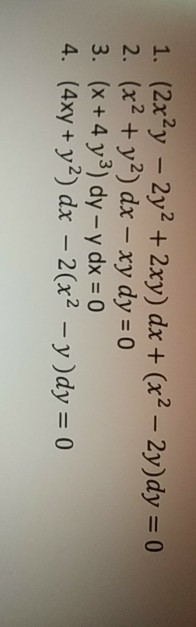 1. (2x²y − 2y² + 2xy) dx + (x² − 2y)dy = 0
2. (x² + y²) dx − xy dy = 0
3. (x + 4 y³) dy – y dx = 0
4. (4xy + y²) dx − 2(x² − y )dy = 0